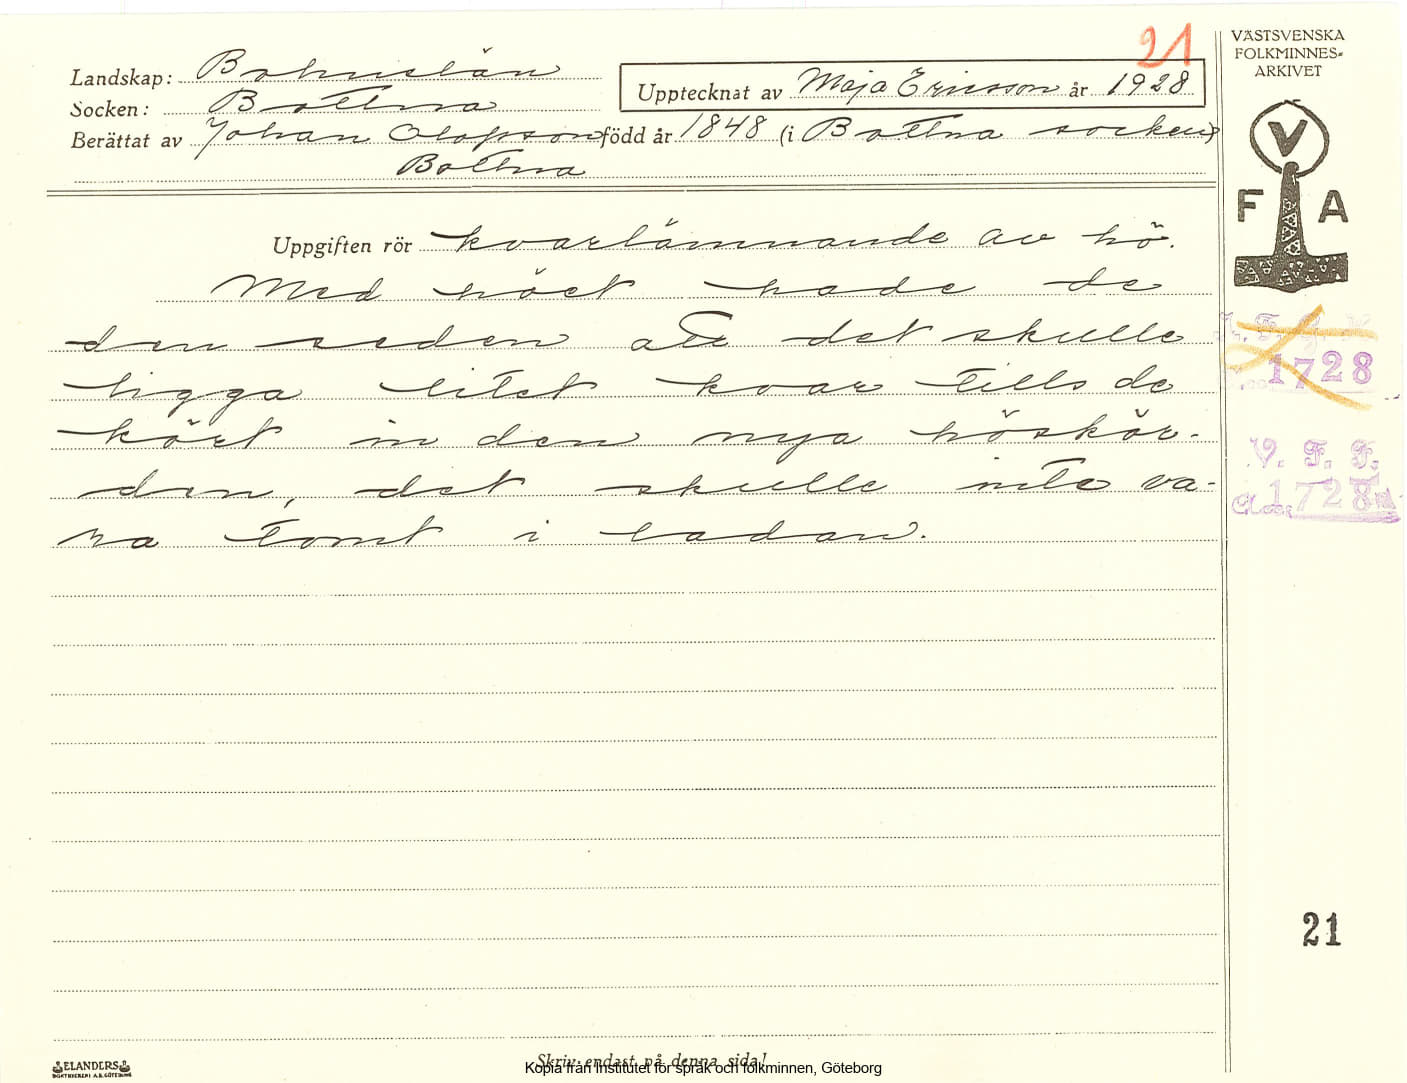 21
Landskap: Bohuslän
Socken: Bottna
Upptecknat av Maja Ericsson år 1928
Berättat av Johan Olofsson född år 1848 (i Bottna socken)
Bottna
Uppgiften rör kvarlämnande av hö.
Med höet hade de
den seden att det skulle
ligga litet kvar tills de
kört in den nya höskör-
den, det skulle inte va-
ra tomt i ladan.
VÄSTSVENSKA
FOLKMINNES-
ARKIVET
V
F A
1728
V. F. F.
1728
21
Skriv endast på denna sida!
Kopia från Institutet för språk och folkminnen, Göteborg
ELANDERS
BOKTRYCKERI A.B. GÖTEBORG